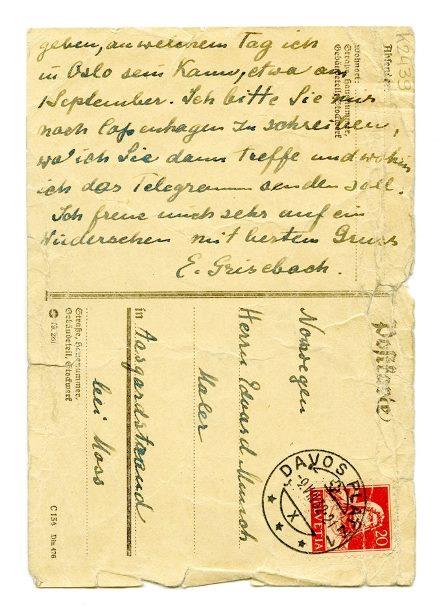 geben, an welchem Tag ich
in Oslo sein kann, etwa am
1 September. Ich bitte Sie mir
nach Copenhagen zu schreiben,
wo ich Sie dann treffe und wohin
ich das Telegramm senden soll.
Ich freue mich sehr auf ein
Wiedersehen mit bestem Gruss
E. Grisebach.
Absender:
Wohnort:
Straße, Hausnummer,
Gebäudeteil, Stockwerk
K 2439
Postkarte
Norwegen
Herrn Edvard Munch
Maler
in Aasgardstrand
bei Moss
Straße, Hausnummer,
Gebäudeteil, Stockwerk
C 154 Din 476
DAVOS PLATZ
X
HELVETIA
20